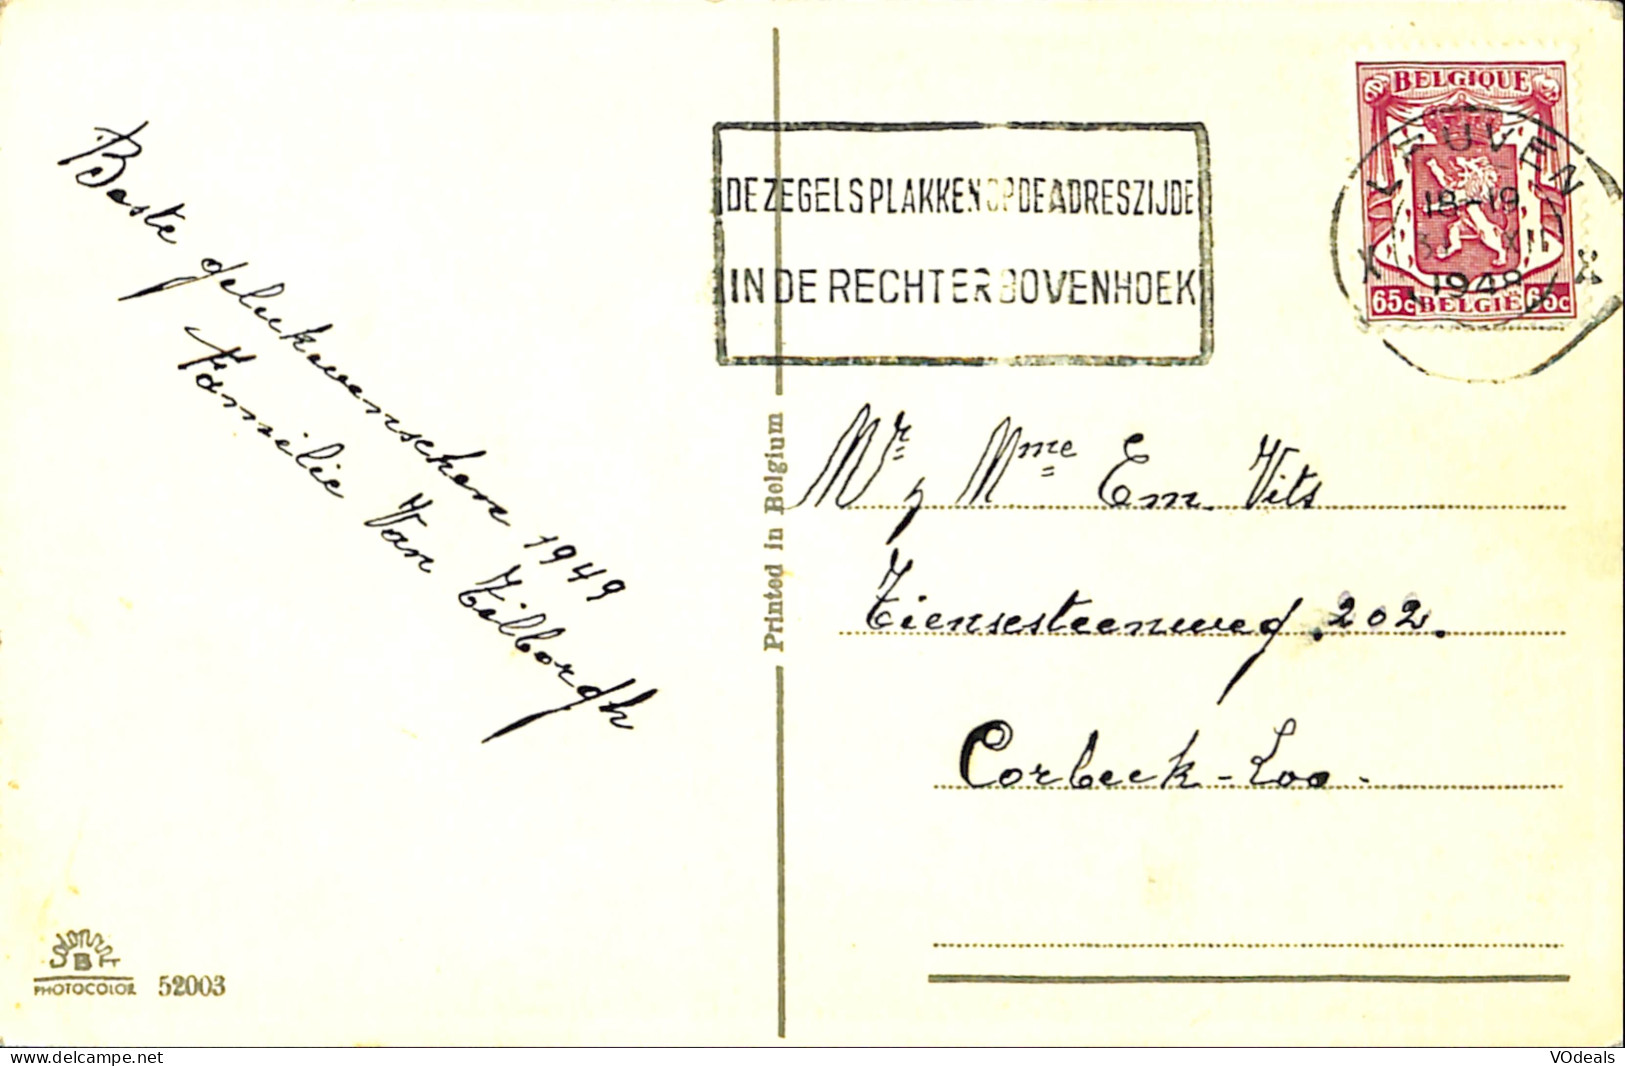 Beste gelukwenschen 1949
Familie Van Tilborgh
PHOTOCOLOR 52003
Printed in Belgium
DE ZEGELS PLAKKEN OP DE ADRESZIJDE
IN DE RECHTER BOVENHOEK
BELGIQUE
65c BELGIE 65c
LEUVEN
18-19
XII
1948
X X
Mr y Mme Em. Vits
Tiensesteenweg. 202.
Corbeek-Loo-
www.delcampe.net
VOdeals